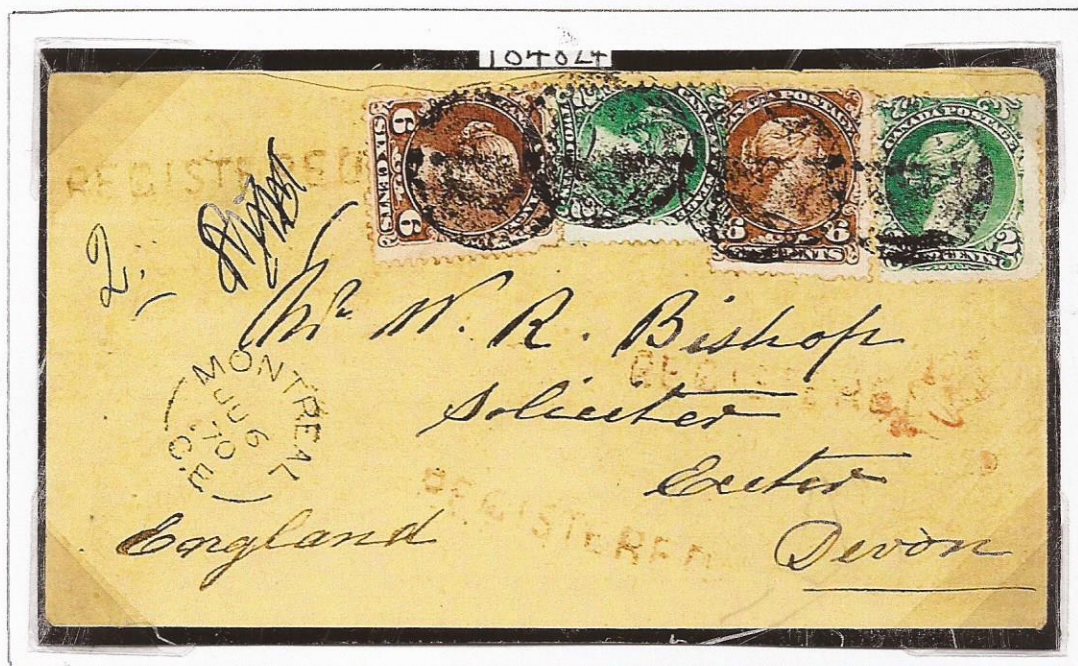 184824
REGISTERED
SIX CENTS
6 6
CANADA POSTAGE
2
CENTS
2.
Mr W. R. Bishop
REGISTERED
Solicitor
MONTREAL
JU 6
70
C.E
Exeter
REGISTERED
England
Devon